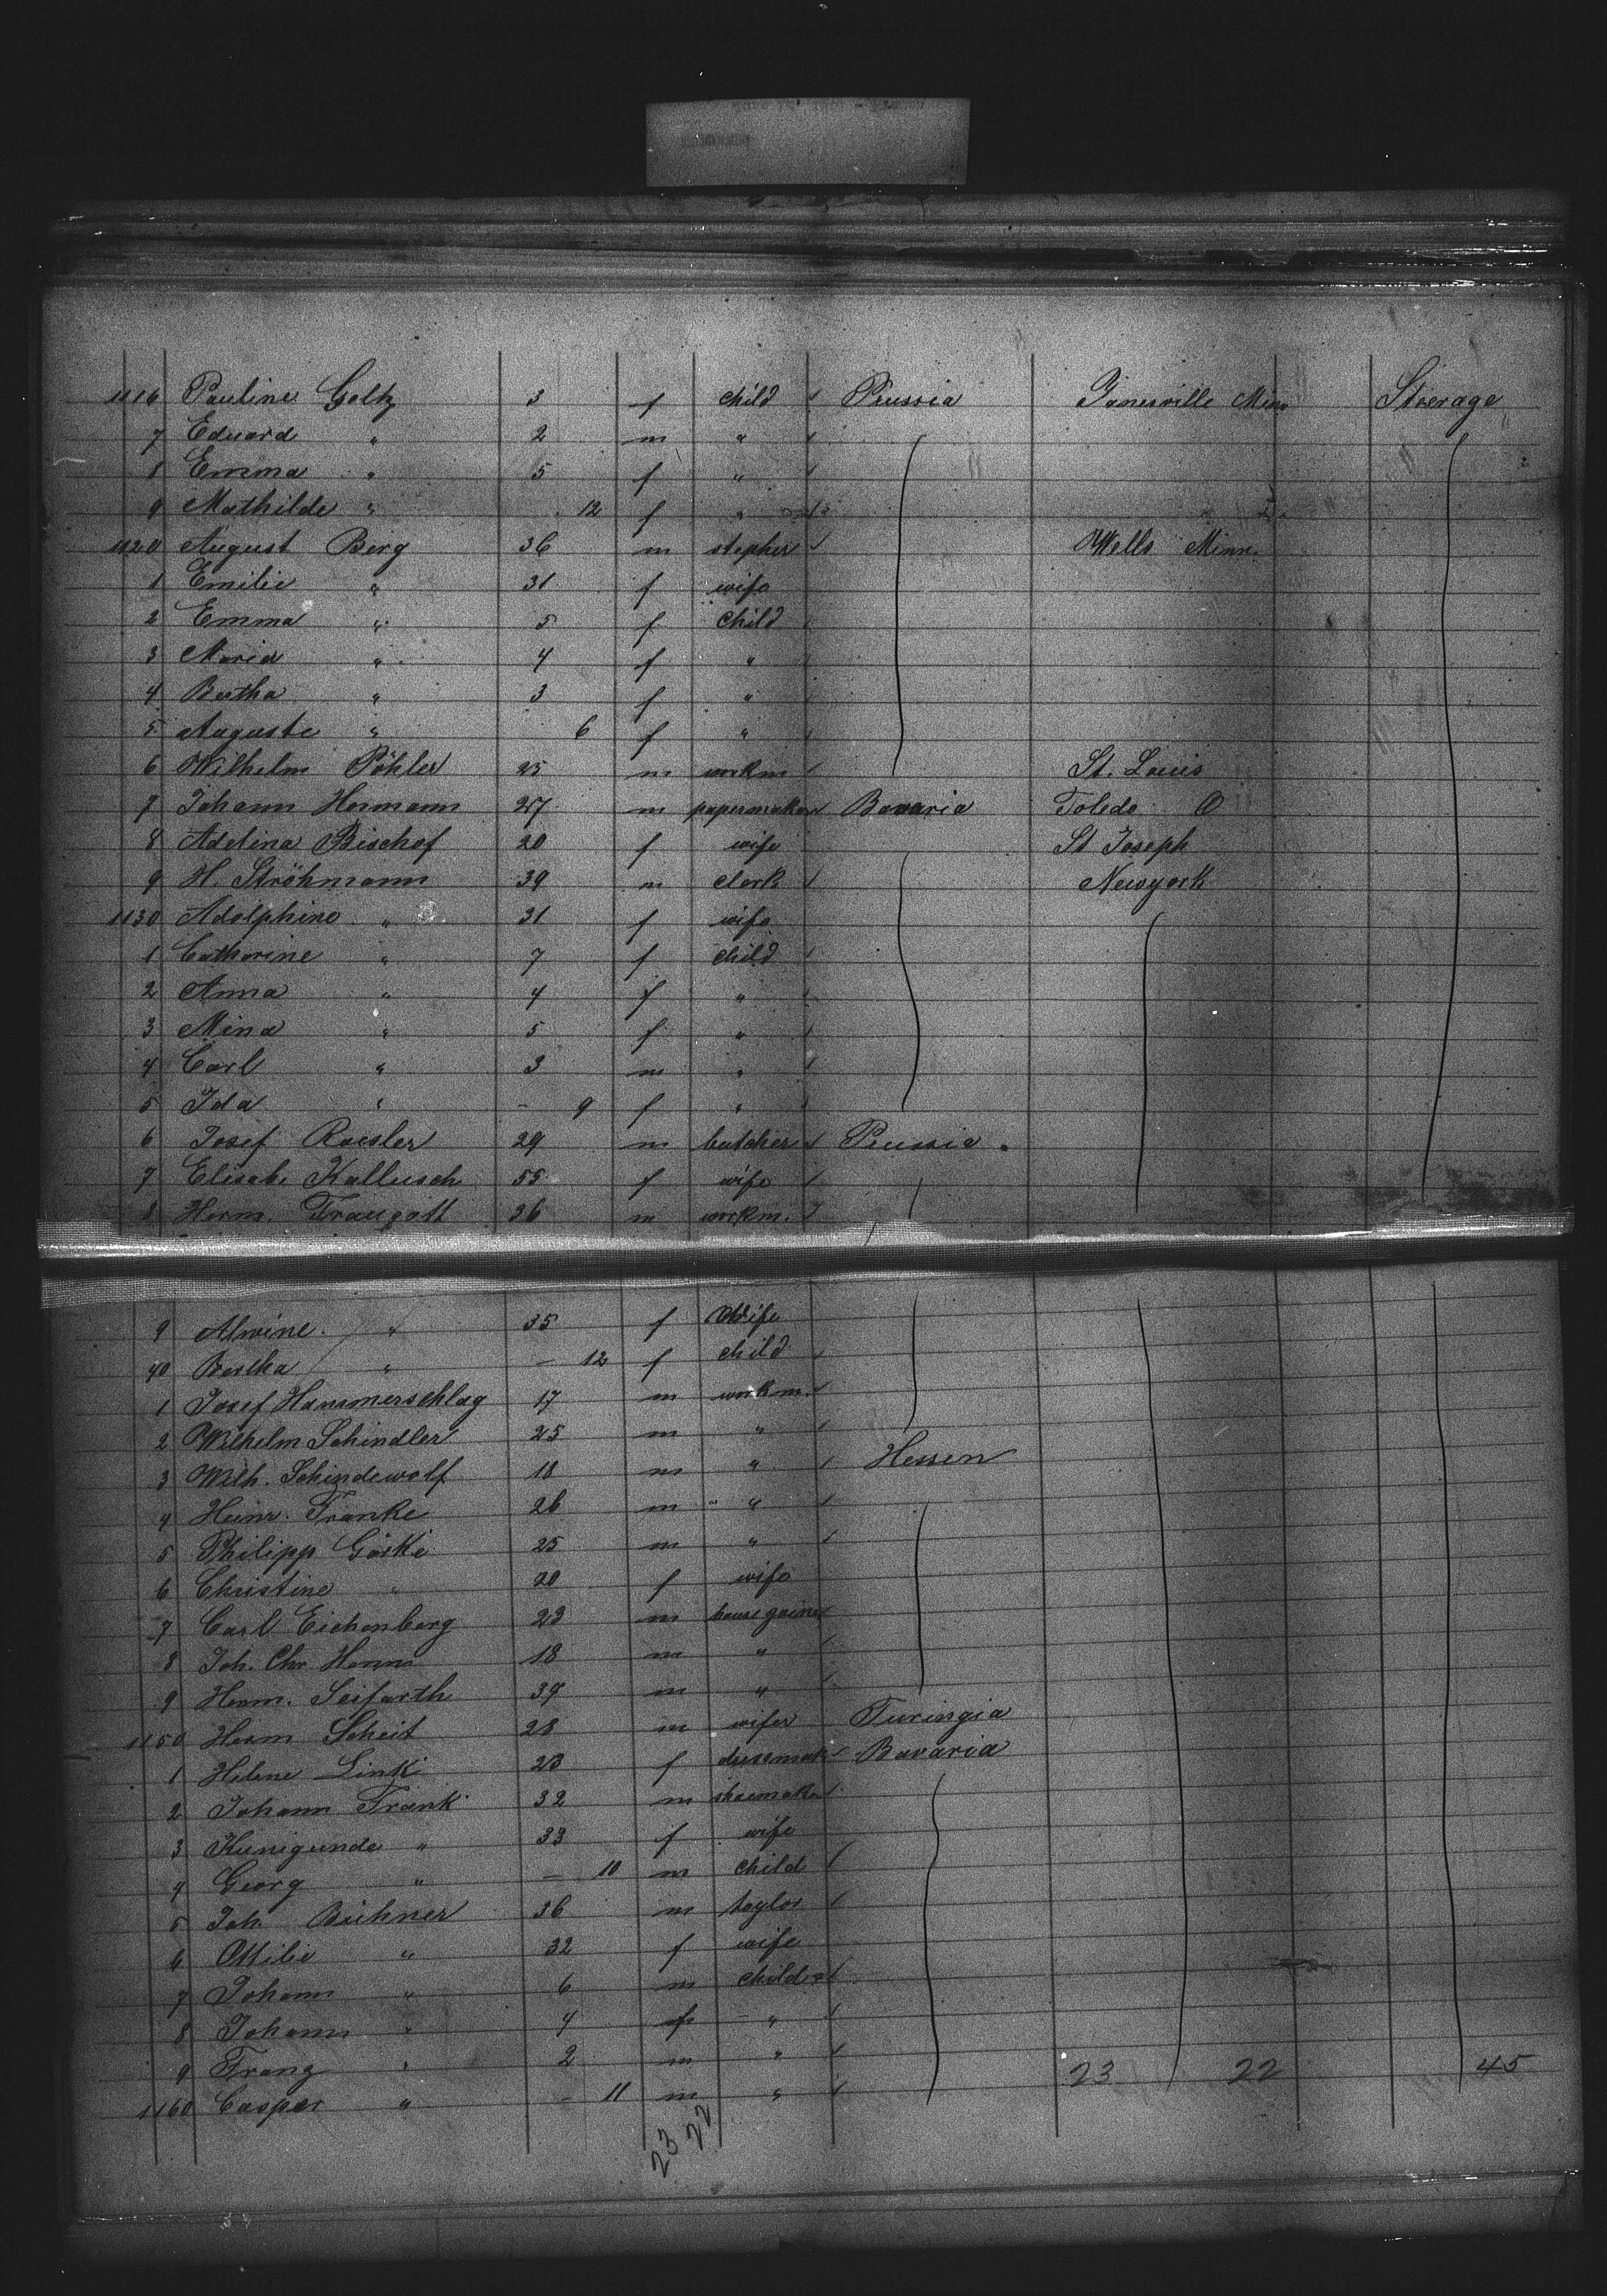 1116 Pauline Goltz 3 f child Prussia Janesville Minn Steerage
7 Eduard " 2 m "
8 Emma " 5 f "
9 Mathilde " 12 f "
1120 August Berg 36 m stepher Wells Minn.
1 Emilie " 31 f wife
2 Emma " 5 f Child
3 Maria " 4 f "
4 Bertha " 3 f "
5 Auguste " 6 f "
6 Wilhelm Pöhler 25 m workm St. Louis
7 Johann Hermann 27 m papermaker Bavaria Toledo O
8 Adelina Bischof 20 f wife St Joseph
9 H. Ströhmann 39 m clerk Newyork
1130 Adolphine " 31 f wife
1 Catharine " 7 f child
2 Anna " 4 f "
3 Mina " 5 f "
4 Carl " 3 m "
5 Ida " - 9 f "
6 Josef Roesler 29 m butcher Prussia
7 Elisabe Kallusch 55 f wife
8 Herm. Traugott 36 m workm.
9 Alwine " 35 f Wife
40 Bertha " - 12 f child
1 Josef Hammerschlag 17 m workm
2 Wilhelm Schindler 25 m "
3 Wilh. Schindewolf 18 m " Hessen
4 Heinr. Franke 26 m "
5 Philipp Görke 25 m "
6 Christine " 20 f wife
7 Carl Eichenberg 23 m
8 Joh. Chr. 18 m "
9 Herm. Seifarth 39 m "
1150 Herm Scheit 28 m wifer Turingia
1 Helene Link 23 f dressmak Bavaria
2 Johann Frank 32 m shoemaker
3 Kunigunde " 33 f wife
4 Georg " - 10 m child
5 Joh Bühner 36 m taylor
6 Ottilie " 32 f wife
7 Johann " 6 m child
8 Johann " 4 f "
9 Franz " 2 m "
1160 Casper " - 11 m "
23 22 45
23 22